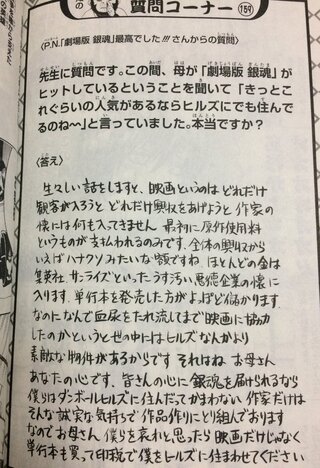 の
質問コーナー
159
〈P.N.「劇場版 銀魂」最高でした!!!さんからの質問〉
先生に質問です。この間、母が「劇場版 銀魂」が
ヒットしているということを聞いて「きっとこ
れぐらいの人気があるならヒルズにでも住んで
るのね〜」と言っていました。本当ですか？
〈答え〉
生々しい話をしますと、映画というのは どれだけ
観客が入ろうと どれだけ興収をあげようと 作家の
懐には何も入ってきません 最初に原作使用料
というものが支払われるのみです。全体の興収から
いえば ハナクソみたいな額ですね。ほとんどの金は
集英社、サンライズといったうす汚い悪徳企業の懐に
入ります。単行本を発売した方がよほど儲かります
なのになんで血尿をたれ流してまで映画に協力
したのかというと世の中にはヒルズなんかより
素敵な物件があるからです それはね お母さん
あなたの心です、皆さんの心に銀魂を届けられるなら
僕らはダンボールヒルズに住んだってかまわない 作家だけは
そんな誠実な気持ちで作品作りにとり組んでおります
なのでお母さん 僕らを哀れと思ったら 映画だけじゃなく
単行本も買って印税で僕をヒルズに住まわせてください